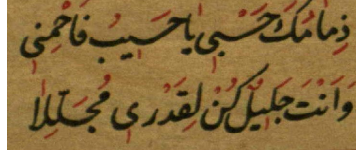 ذِمَامُكَ حَسْبِي يَا حَسِيبُ فَاحْمِنِي
وَاَنْتَ جَلِيلٌ كُنْ لِقَدْرِى مُجَلِّلَا